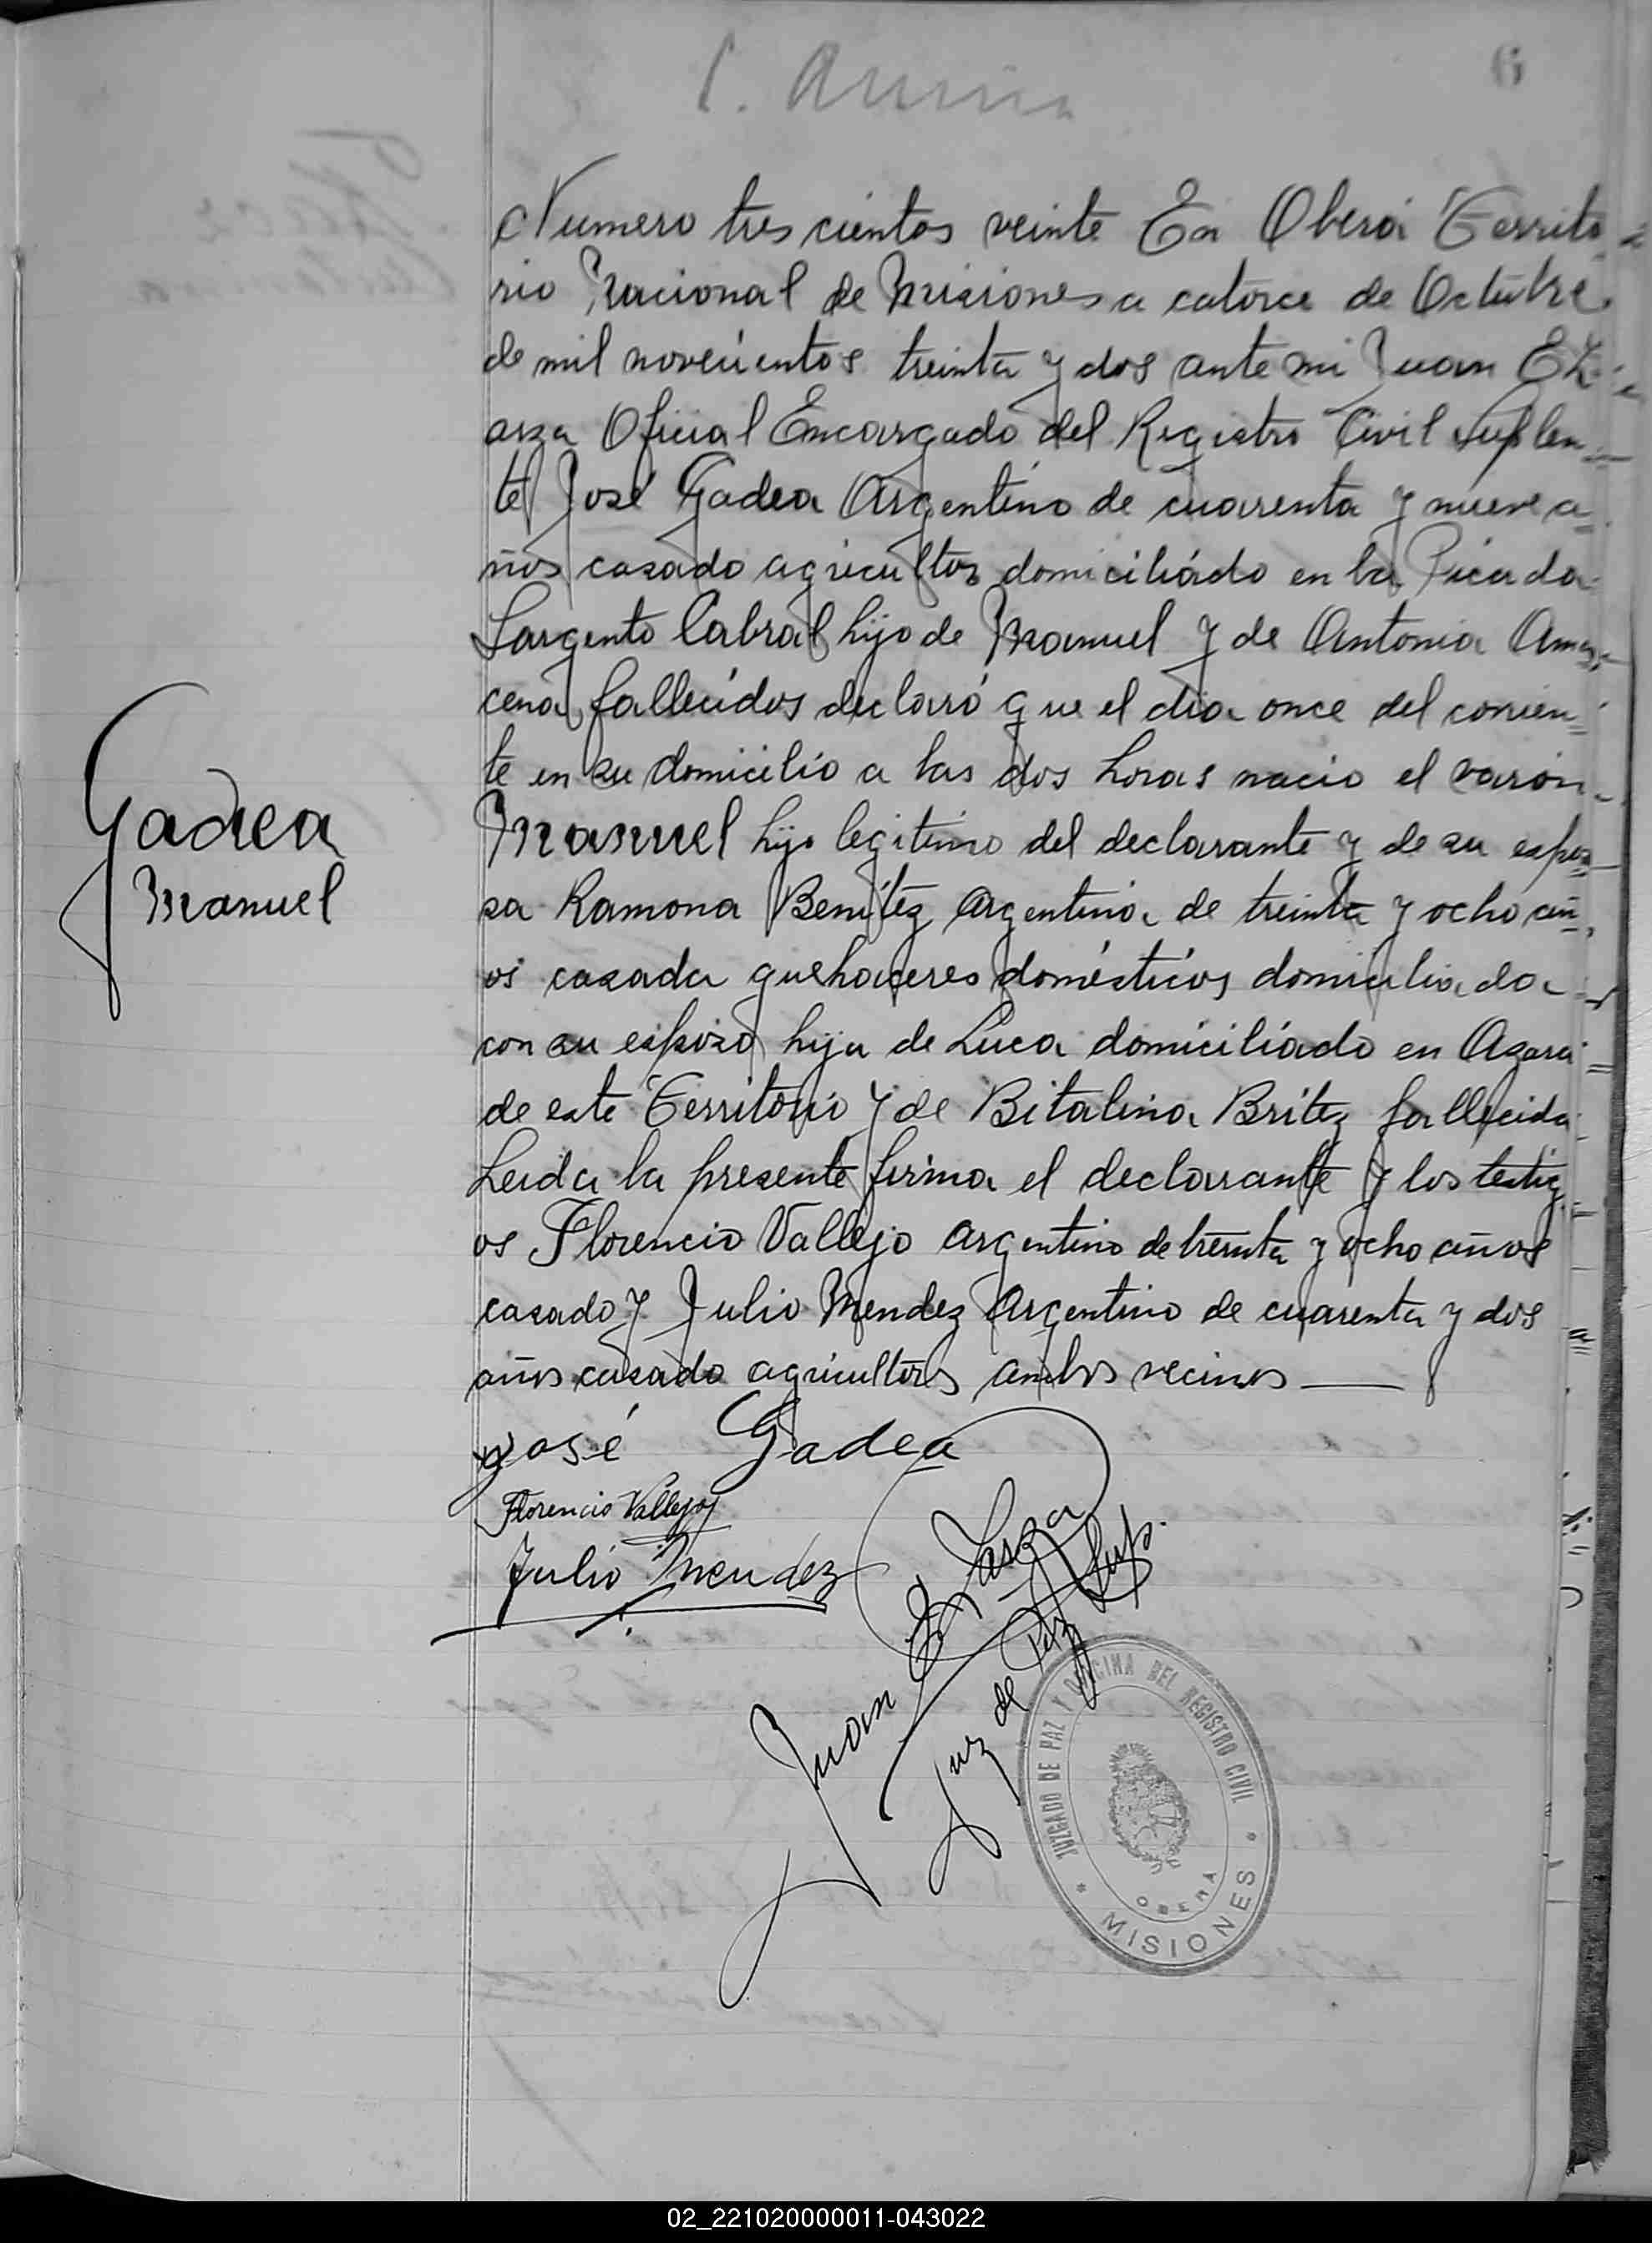 6
Numero tres cientos veinte En Oberá Territo
rio Nacional de Misiones a catorce de Octubre
de mil novecientos treinta y dos ante mi Juan E L
arza Oficial Encargado del Registro Civil Suplen
te José Gadea Argentino de cuarenta y nueve a
ños casado agricultor domiciliádo en la Picada
Sargento Cabral hijo de Manuel y de Antonia Ama
cena fallecidos declaró que el dia once del corrien
te en su domicilio a las dos horas nacio el varón
Gadea
Manuel hijo legitimo del declarante y de su espo
Manuel
sa Ramona Benítez Argentina de treinta y ocho añ
os casada quehaceres domésticos domiciliada
con su espozo hija de Luca domiciliádo en Azara
de este Territorio y de Bitalina Britez fallecida
Leida la presente firma el declarante y los testig
os Florencio Vallejo Argentino de treinta y ocho años
casado y Julio Mendez Argentino de cuarenta y dos
años casado agricultores ambos vecinos
José Gadea
Florencio Vallejo
Julio Mendez
Juan E Larza
Juez de Paz Sup.
JUZGADO DE PAZ Y OFICINA DEL REGISTRO CIVIL
OBERÁ
* MISIONES *
02_221020000011-043022